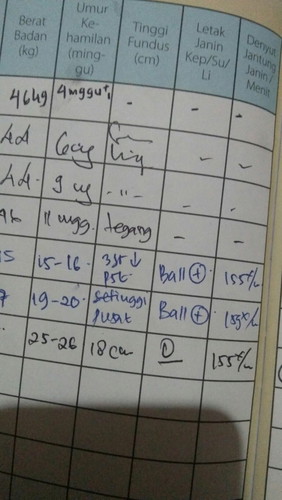 Berat
Badan
(kg)
Umur
Ke-
hamilan
(ming-
gu)
Tinggi
Fundus
(cm)
Letak
Janin
Kep/Su/
Li
Denyut
Jantung
Janin/
Menit
4 mggu - - -
- -
9 - " - - -
11 mgg. tegang - -
15-16 Ball + 155x/m
19-20 setinggi Ball + 155x/m
pusat
25-26 18 cm 155x/m